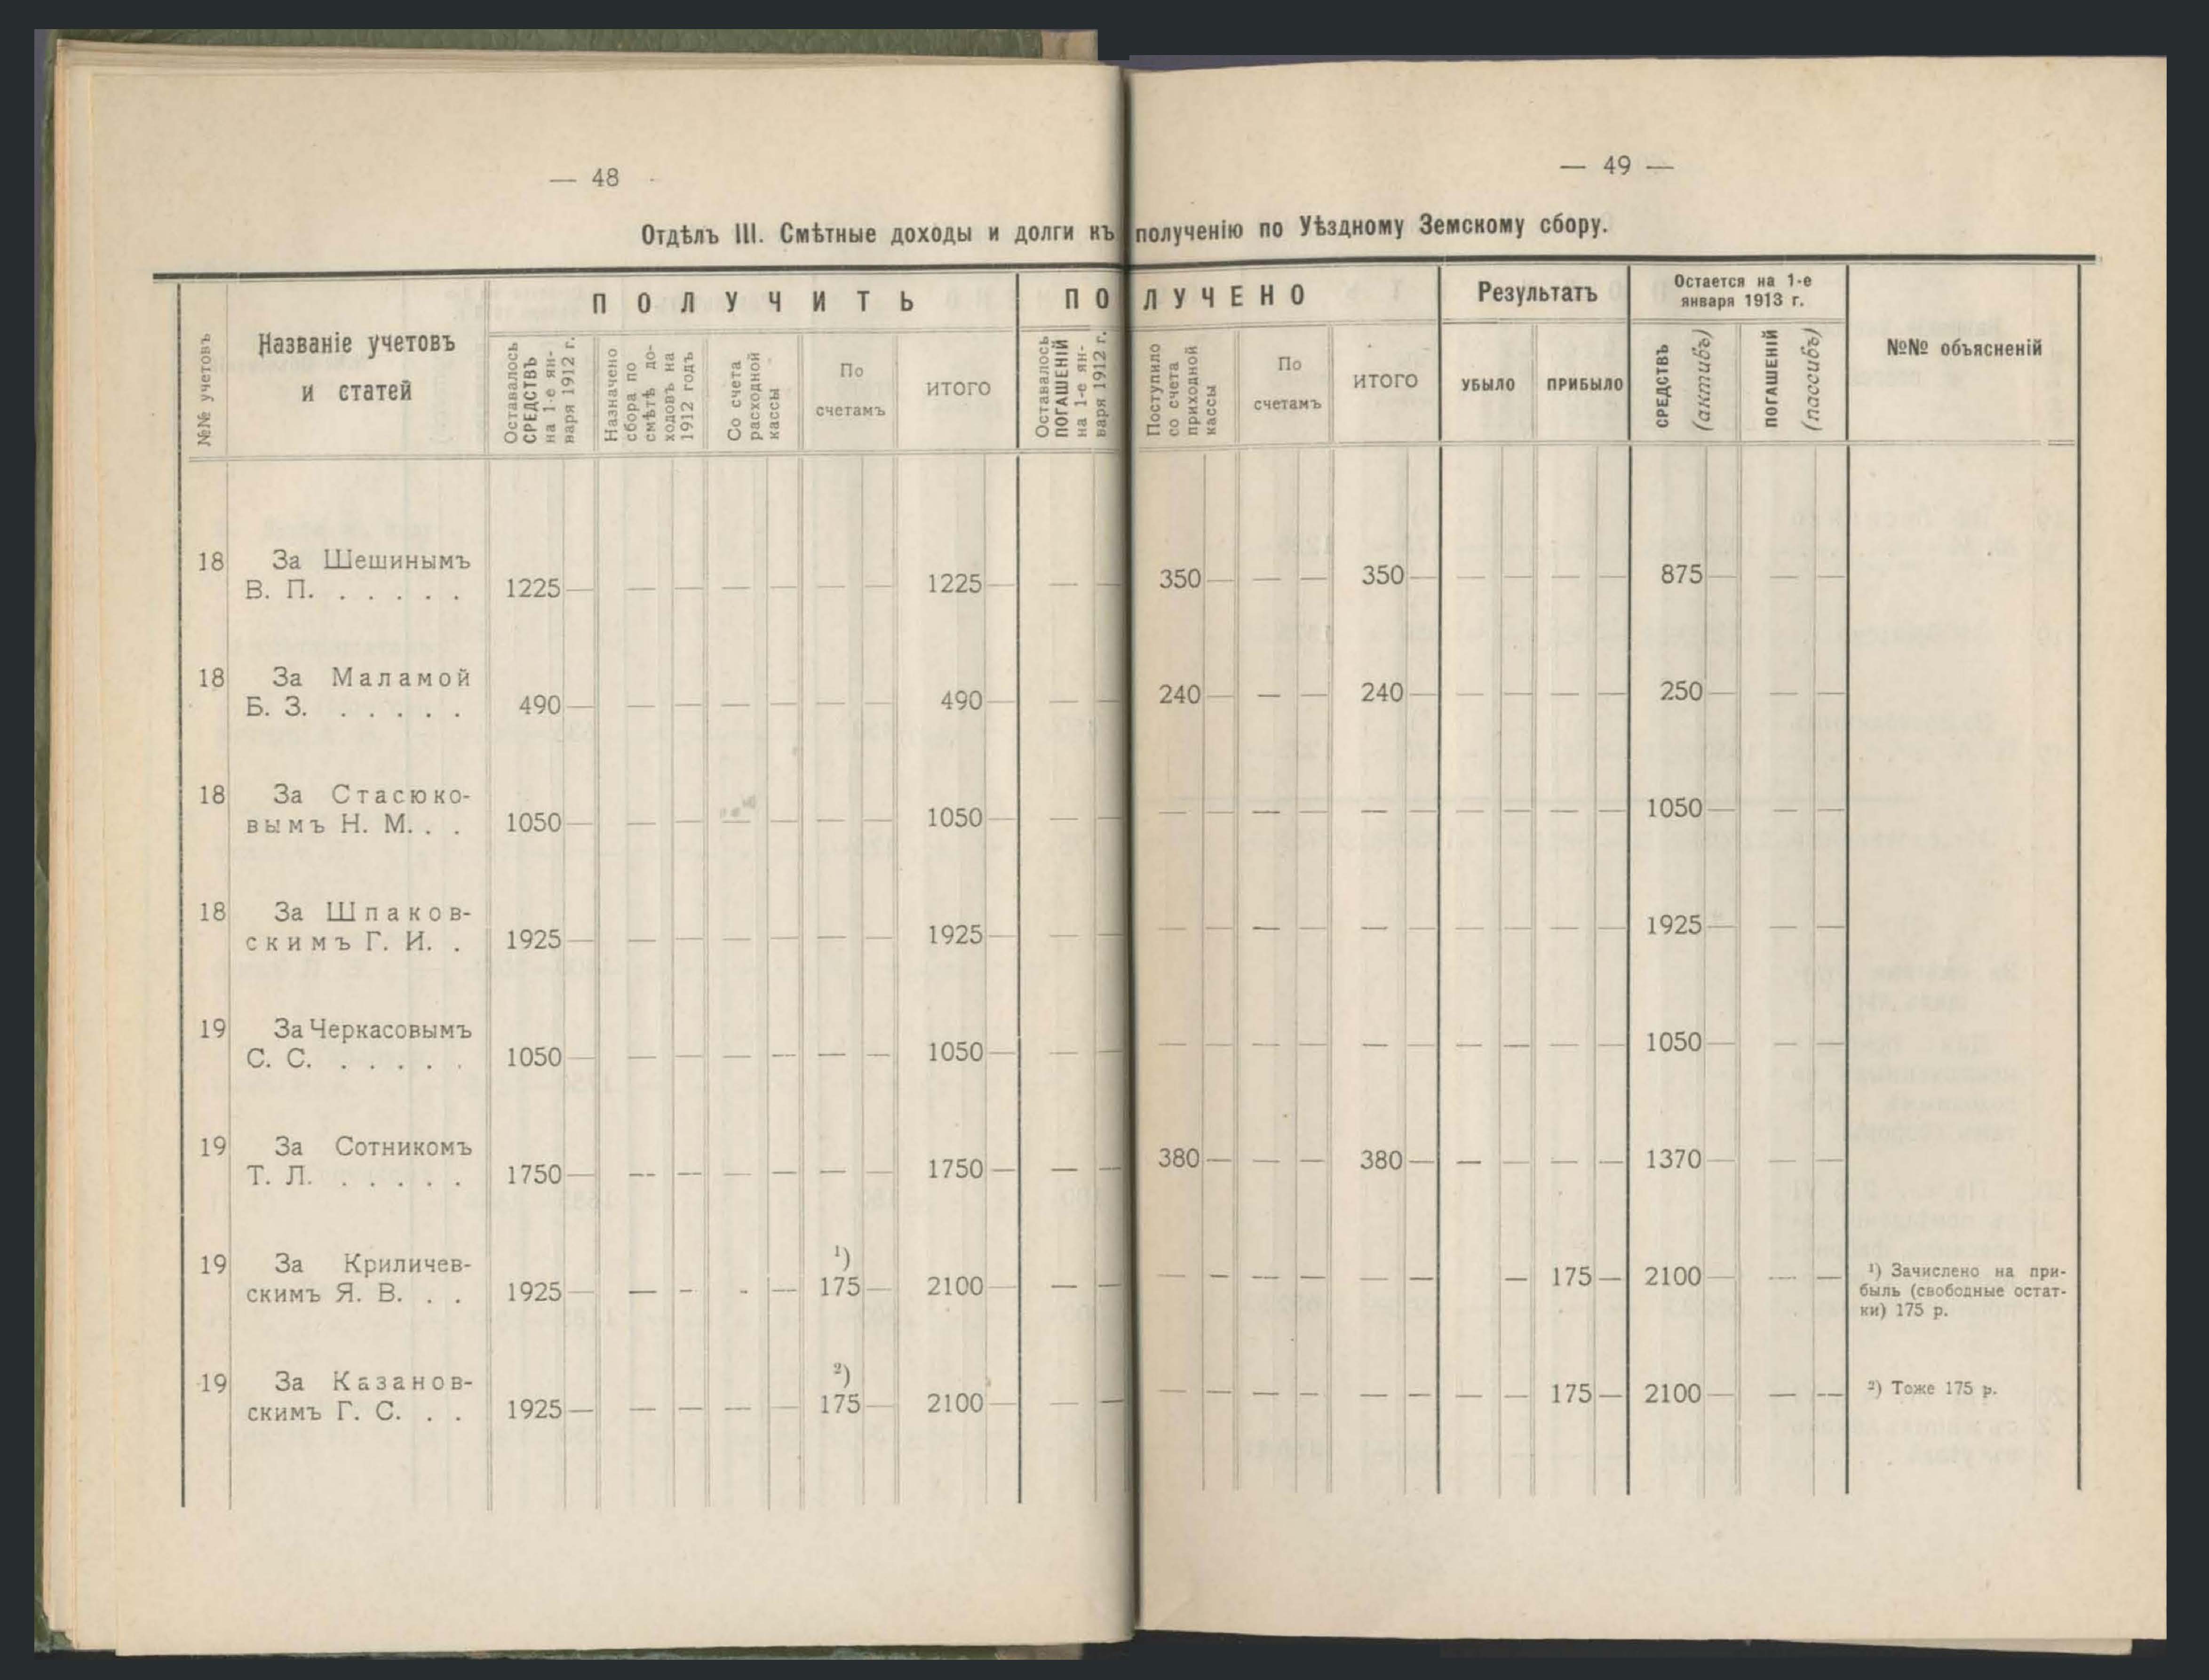 — 48
— 49 —
Отдѣлъ III. Смѣтные доходы и долги къ полученію по Уѣздному Земскому сбору.
№№ учетовъ
Названіе учетовъ
и статей
ПОЛУЧИТЬ
Оставалось
СРЕДСТВЪ
на 1-е ян-
варя 1912 г.
Назначено
сбора по
смѣтѣ до-
ходовъ на
1912 годъ
Со счета
расходной
кассы
По
счетамъ
ИТОГО
ПОЛУЧЕНО
Оставалось
ПОГАШЕНІЙ
на 1-е ян-
варя 1912 г.
Поступило
со счета
приходной
кассы
По
счетамъ
ИТОГО
Результатъ
УБЫЛО
ПРИБЫЛО
Остается на 1-е
января 1913 г.
СРЕДСТВЪ
(активъ)
ПОГАШЕНІЙ
(пассивъ)
№№ объясненій
18 За Шешинымъ
В. П. . . . . . 1225 — — — — — — — 1225 — — — 350 — — — 350 — — — — — 875 — — —
18 За Маламой
Б. З. . . . . . 490 — — — — — — — 490 — — — 240 — — — 240 — — — — — 250 — — —
18 За Стасюко-
вымъ Н. М. . . 1050 — — — — — — — 1050 — — — — — — — — — — — — — 1050 — — —
18 За Шпаков-
скимъ Г. И. . 1925 — — — — — — — 1925 — — — — — — — — — — — — — 1925 — — —
19 За Черкасовымъ
С. С. . . . . . 1050 — — — — — — — 1050 — — — — — — — — — — — — — 1050 — — —
19 За Сотникомъ
Т. Л. . . . . . 1750 — — — — — — — 1750 — — — 380 — — — 380 — — — — — 1370 — — —
19 За Криличев-
¹)
скимъ Я. В. . . 1925 — — — — — 175 — 2100 — — — — — — — — — — 175 — 2100 — — —
¹) Зачислено на при-
быль (свободные остат-
ки) 175 р.
19 За Казанов-
²)
скимъ Г. С. . . 1925 — — — — — 175 — 2100 — — — — — — — — — — — 175 — 2100 — — —
²) Тоже 175 р.